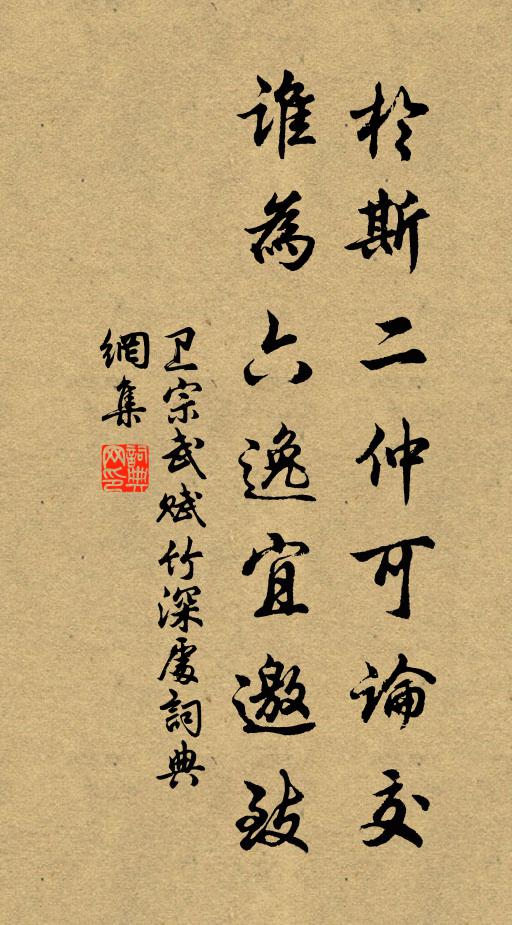 於斯二仲可論交
誰為六逸宜邀致
卫宗武赋竹深處詞典
網集
詞典
网印